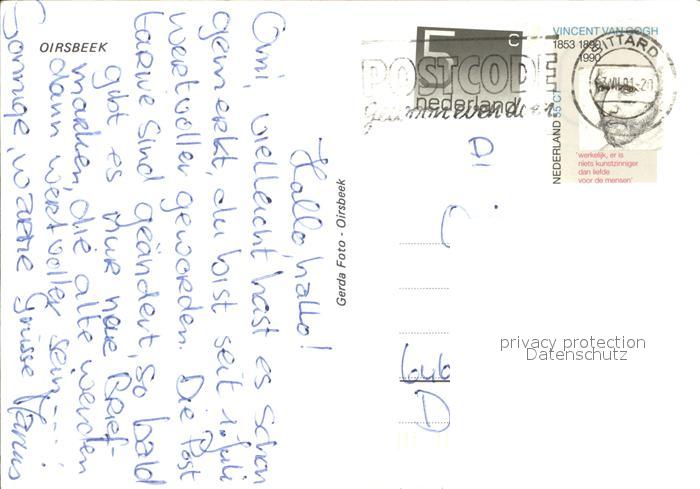 OIRSBEEK
Hallo, hallo!
Omi, vielleicht hast es schon
gemerkt, du bist seit 1. Juli
wertvoller geworden. Die Post
tarive sind geändert, so bald
gibt es nur neue Brief-
marken, die alte werden
dann wertvoller sein---!
Sonnige, warme Grüsse Marius
Gerda Foto - Oirsbeek
5 c
nederland
POSTCODE
VINCENT VAN GOGH
1853 1890
1990
NEDERLAND 55 CT
'werkelijk, er is
niets kunstzinniger
dan liefde
voor de mensen'
SITTARD
privacy protection
Datenschutz
D